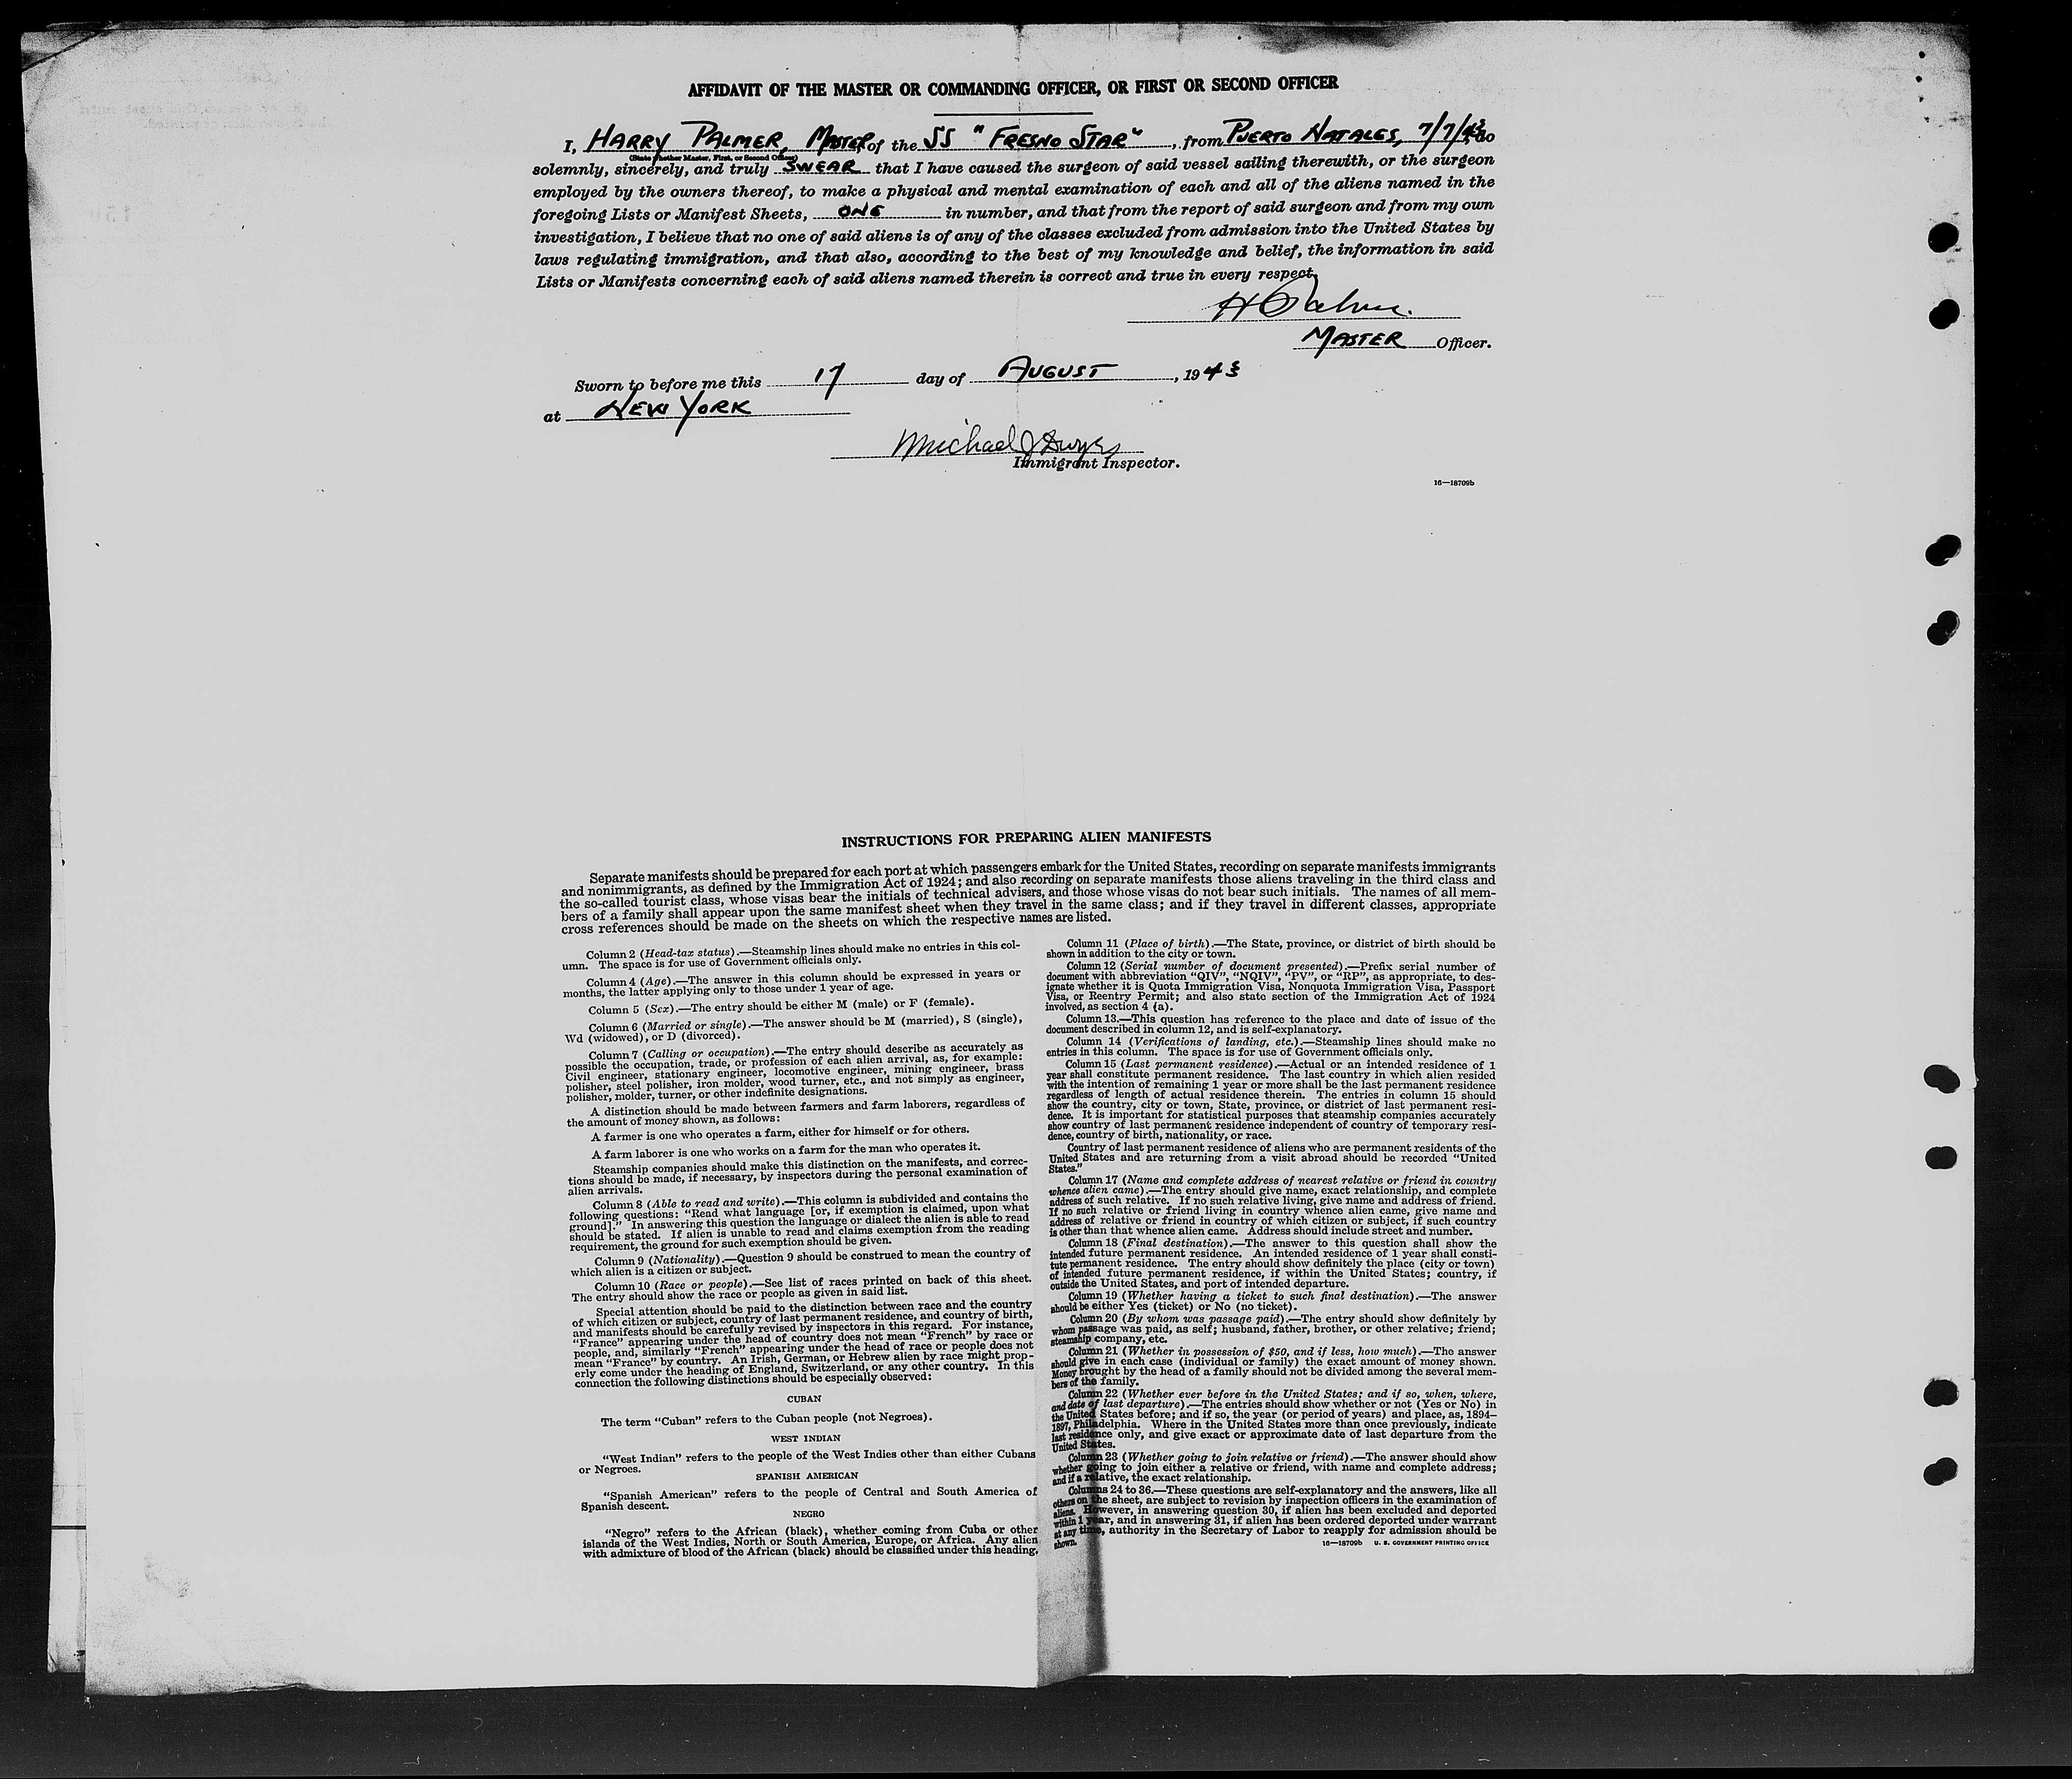 AFFIDAVIT OF THE MASTER OR COMMANDING OFFICER, OR FIRST OR SECOND OFFICER
I, HARRY PALMER, MASTER of the SS "FRESNO STAR", from PUERTO NATALES, 7/7/43, do
(State whether Master, First, or Second Officer)
solemnly, sincerely, and truly SWEAR that I have caused the surgeon of said vessel sailing therewith, or the surgeon
employed by the owners thereof, to make a physical and mental examination of each and all of the aliens named in the
foregoing Lists or Manifest Sheets, ONE in number, and that from the report of said surgeon and from my own
investigation, I believe that no one of said aliens is of any of the classes excluded from admission into the United States by
laws regulating immigration, and that also, according to the best of my knowledge and belief, the information in said
Lists or Manifests concerning each of said aliens named therein is correct and true in every respect.
H Palmer.
MASTER Officer.
Sworn to before me this 17 day of AUGUST, 1943
at NEW YORK
Michael J Dwyer
Immigrant Inspector.
16—18709b
INSTRUCTIONS FOR PREPARING ALIEN MANIFESTS
Separate manifests should be prepared for each port at which passengers embark for the United States, recording on separate manifests immigrants
and nonimmigrants, as defined by the Immigration Act of 1924; and also recording on separate manifests those aliens traveling in the third class and
the so-called tourist class, whose visas bear the initials of technical advisers, and those whose visas do not bear such initials. The names of all mem-
bers of a family shall appear upon the same manifest sheet when they travel in the same class; and if they travel in different classes, appropriate
cross references should be made on the sheets on which the respective names are listed.
Column 2 (Head-tax status).—Steamship lines should make no entries in this col-
umn. The space is for use of Government officials only.
Column 4 (Age).—The answer in this column should be expressed in years or
months, the latter applying only to those under 1 year of age.
Column 5 (Sex).—The entry should be either M (male) or F (female).
Column 6 (Married or single).—The answer should be M (married), S (single),
Wd (widowed), or D (divorced).
Column 7 (Calling or occupation).—The entry should describe as accurately as
possible the occupation, trade, or profession of each alien arrival, as, for example:
Civil engineer, stationary engineer, locomotive engineer, mining engineer, brass
polisher, steel polisher, iron molder, wood turner, etc., and not simply as engineer,
polisher, molder, turner, or other indefinite designations.
A distinction should be made between farmers and farm laborers, regardless of
the amount of money shown, as follows:
A farmer is one who operates a farm, either for himself or for others.
A farm laborer is one who works on a farm for the man who operates it.
Steamship companies should make this distinction on the manifests, and correc-
tions should be made, if necessary, by inspectors during the personal examination of
alien arrivals.
Column 8 (Able to read and write).—This column is subdivided and contains the
following questions: "Read what language [or, if exemption is claimed, upon what
ground]." In answering this question the language or dialect the alien is able to read
should be stated. If alien is unable to read and claims exemption from the reading
requirement, the ground for such exemption should be given.
Column 9 (Nationality).—Question 9 should be construed to mean the country of
which alien is a citizen or subject.
Column 10 (Race or people).—See list of races printed on back of this sheet.
The entry should show the race or people as given in said list.
Special attention should be paid to the distinction between race and the country
of which citizen or subject, country of last permanent residence, and country of birth,
and manifests should be carefully revised by inspectors in this regard. For instance,
"France" appearing under the head of country does not mean "French" by race or
people, and, similarly "French" appearing under the head of race or people does not
mean "France" by country. An Irish, German, or Hebrew alien by race might prop-
erly come under the heading of England, Switzerland, or any other country. In this
connection the following distinctions should be especially observed:
CUBAN
The term "Cuban" refers to the Cuban people (not Negroes).
WEST INDIAN
"West Indian" refers to the people of the West Indies other than either Cubans
or Negroes.
SPANISH AMERICAN
"Spanish American" refers to the people of Central and South America of
Spanish descent.
NEGRO
"Negro" refers to the African (black), whether coming from Cuba or other
islands of the West Indies, North or South America, Europe, or Africa. Any alien
with admixture of blood of the African (black) should be classified under this heading.
Column 11 (Place of birth).—The State, province, or district of birth should be
shown in addition to the city or town.
Column 12 (Serial number of document presented).—Prefix serial number of
document with abbreviation "QIV", "NQIV", "PV", or "RP", as appropriate, to des-
ignate whether it is Quota Immigration Visa, Nonquota Immigration Visa, Passport
Visa, or Reentry Permit; and also state section of the Immigration Act of 1924
involved, as section 4 (a).
Column 13.—This question has reference to the place and date of issue of the
document described in column 12, and is self-explanatory.
Column 14 (Verifications of landing, etc.).—Steamship lines should make no
entries in this column. The space is for use of Government officials only.
Column 15 (Last permanent residence).—Actual or an intended residence of 1
year shall constitute permanent residence. The last country in which alien resided
with the intention of remaining 1 year or more shall be the last permanent residence
regardless of length of actual residence therein. The entries in column 15 should
show the country, city or town, State, province, or district of last permanent resi-
dence. It is important for statistical purposes that steamship companies accurately
show country of last permanent residence independent of country of temporary resi-
dence, country of birth, nationality, or race.
Country of last permanent residence of aliens who are permanent residents of the
United States and are returning from a visit abroad should be recorded "United
States."
Column 17 (Name and complete address of nearest relative or friend in country
whence alien came).—The entry should give name, exact relationship, and complete
address of such relative. If no such relative living, give name and address of friend.
If no such relative or friend living in country whence alien came, give name and
address of relative or friend in country of which citizen or subject, if such country
is other than that whence alien came. Address should include street and number.
Column 18 (Final destination).—The answer to this question shall show the
intended future permanent residence. An intended residence of 1 year shall consti-
tute permanent residence. The entry should show definitely the place (city or town)
of intended future permanent residence, if within the United States; country, if
outside the United States, and port of intended departure.
Column 19 (Whether having a ticket to such final destination).—The answer
should be either Yes (ticket) or No (no ticket).
Column 20 (By whom was passage paid).—The entry should show definitely by
whom passage was paid, as self; husband, father, brother, or other relative; friend;
steamship company, etc.
Column 21 (Whether in possession of $50, and if less, how much).—The answer
should give in each case (individual or family) the exact amount of money shown.
Money brought by the head of a family should not be divided among the several mem-
bers of the family.
Column 22 (Whether ever before in the United States; and if so, when, where,
and date of last departure).—The entries should show whether or not (Yes or No) in
the United States before; and if so, the year (or period of years) and place, as, 1894–
1897, Philadelphia. Where in the United States more than once previously, indicate
last residence only, and give exact or approximate date of last departure from the
United States.
Column 23 (Whether going to join relative or friend).—The answer should show
whether going to join either a relative or friend, with name and complete address;
and if a relative, the exact relationship.
Columns 24 to 36.—These questions are self-explanatory and the answers, like all
others on the sheet, are subject to revision by inspection officers in the examination of
aliens. However, in answering question 30, if alien has been excluded and deported
within 1 year, and in answering 31, if alien has been ordered deported under warrant
at any time, authority in the Secretary of Labor to reapply for admission should be
shown.
16—18709b U. S. GOVERNMENT PRINTING OFFICE